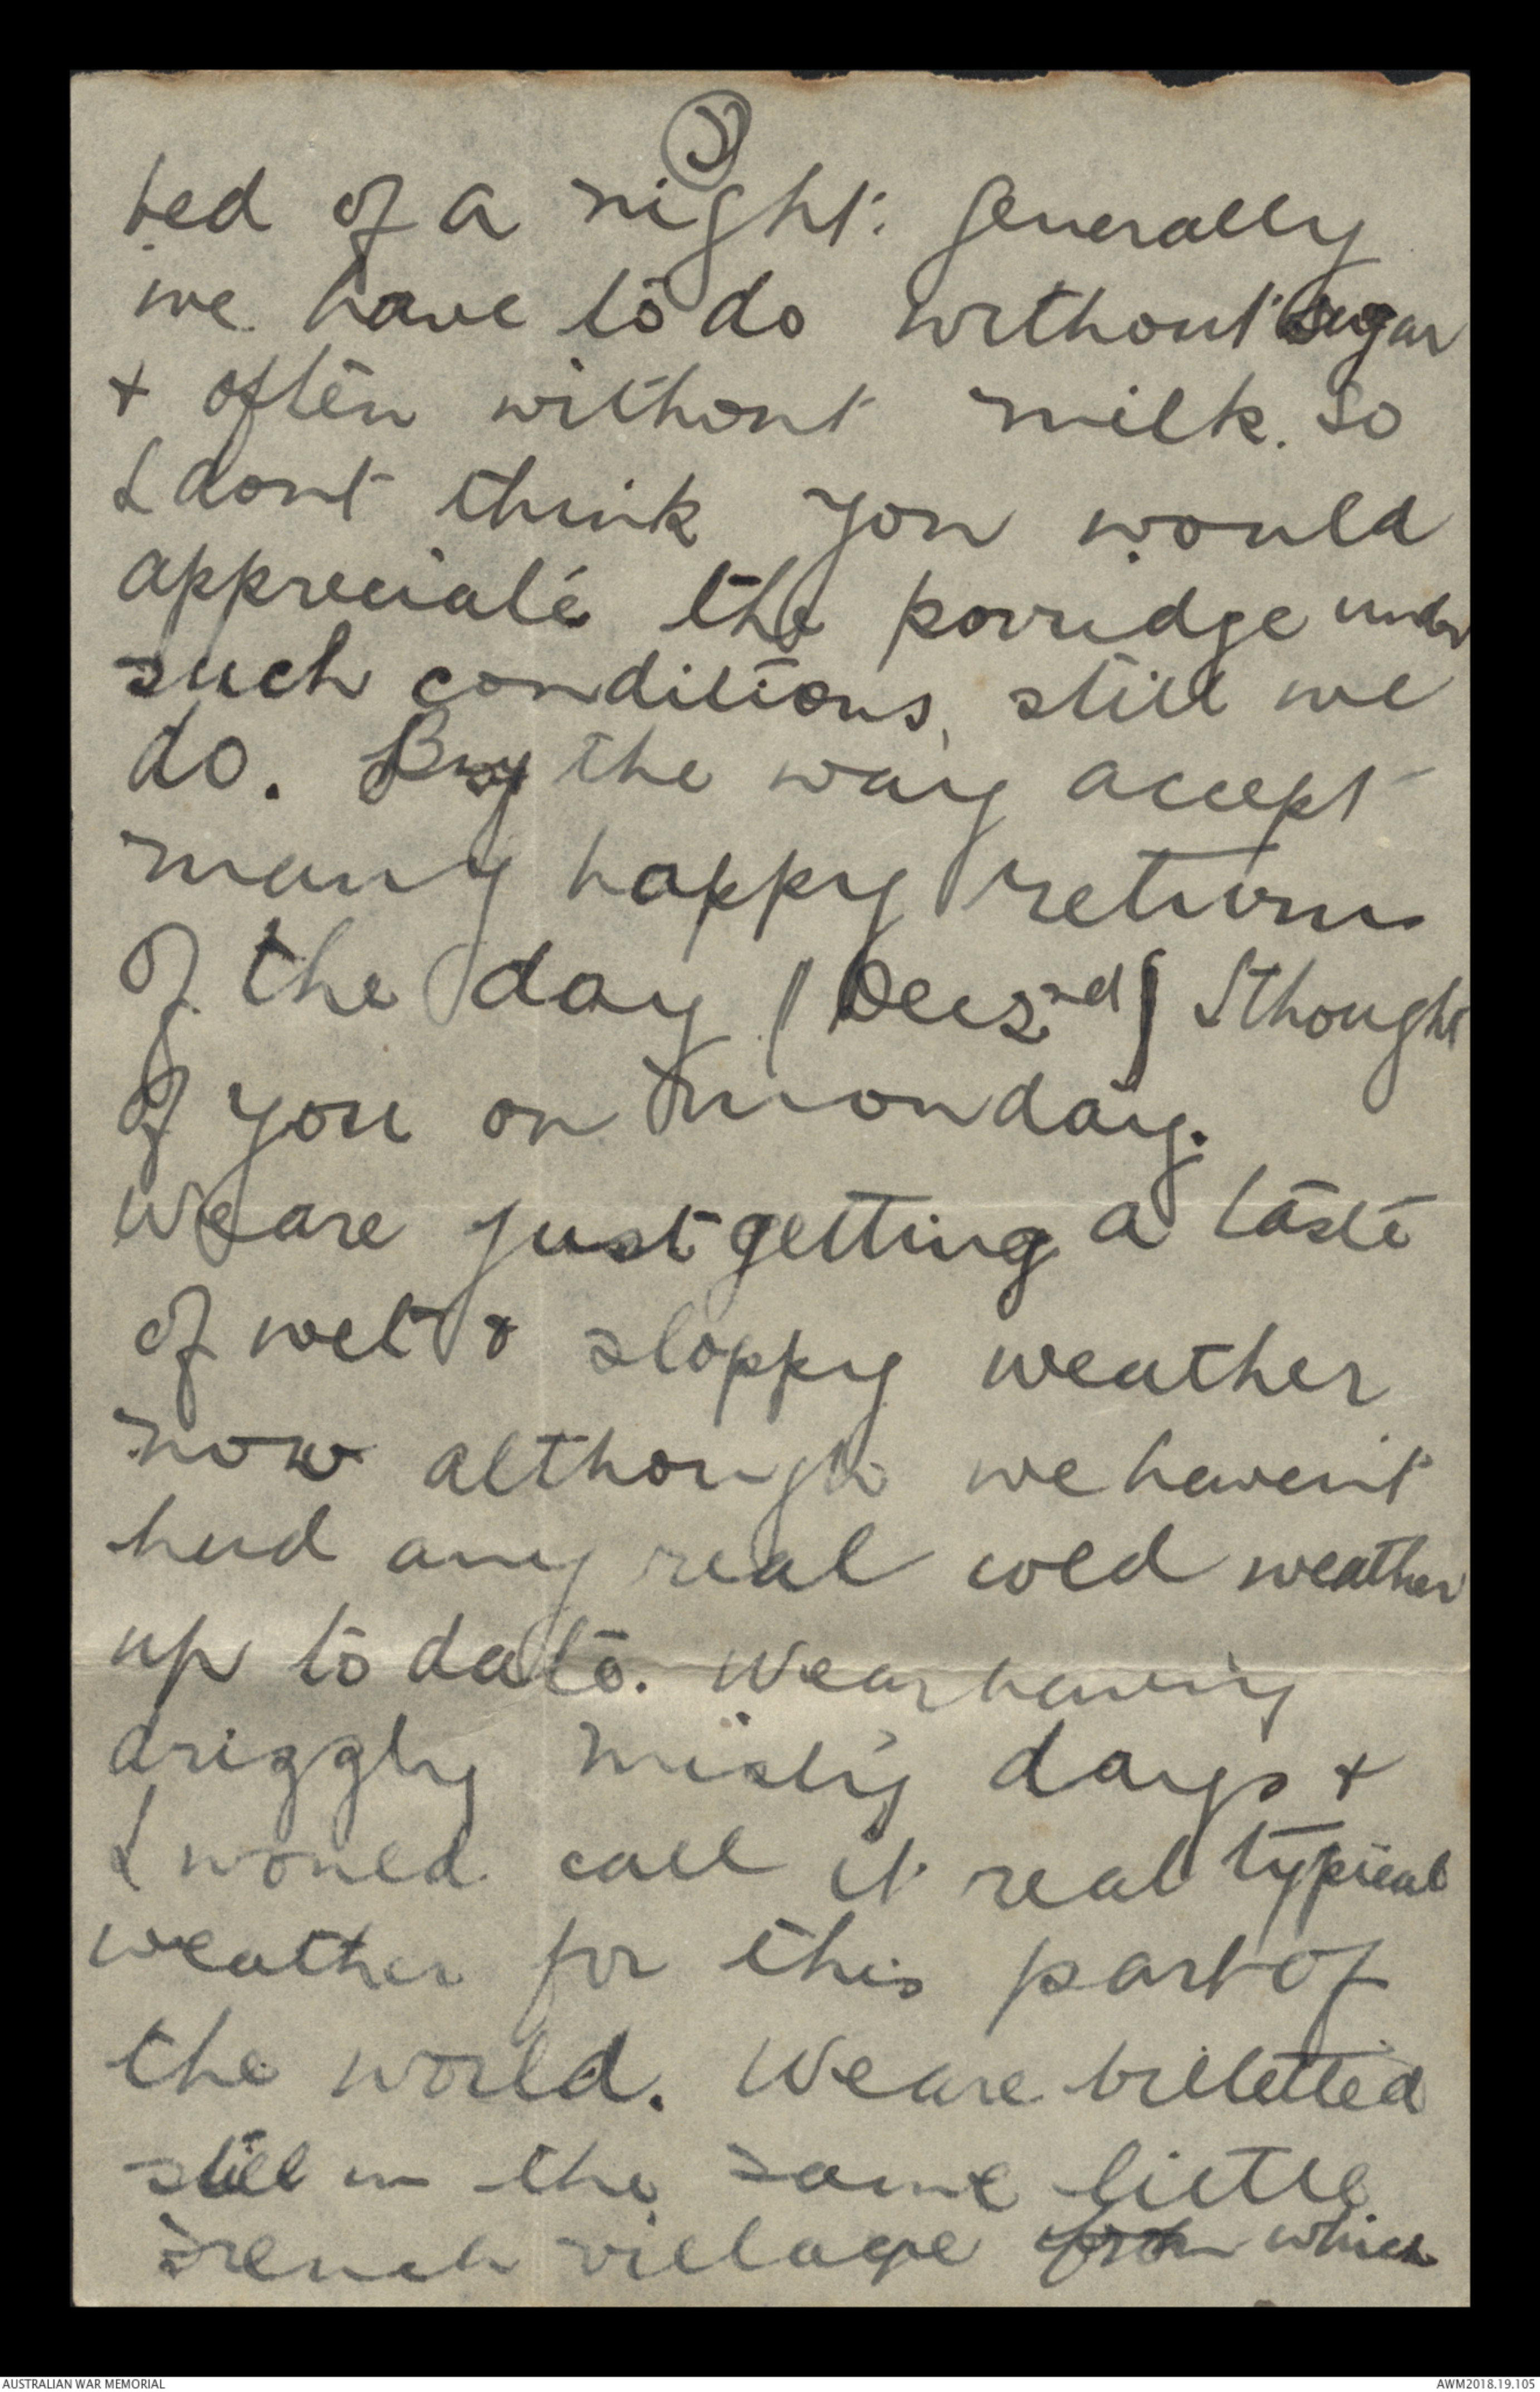 bed of a night. Generally
we have to do without sugar
& often without milk. So
I dont think you would
appreciate the porridge under
such conditions, still we
do. By the way accept
many happy returns
of the day (Dec 2nd) I thought
of you on Monday.
We are just getting a taste
of wet & sloppy weather
now although we haven't
had any real cold weather
up to date. We are having
drizzly misty days &
I would call it real typical
weather for this part of
the world. We are billetted
still in the same little
French village from which
AUSTRALIAN WAR MEMORIAL
AWM2018.19.105